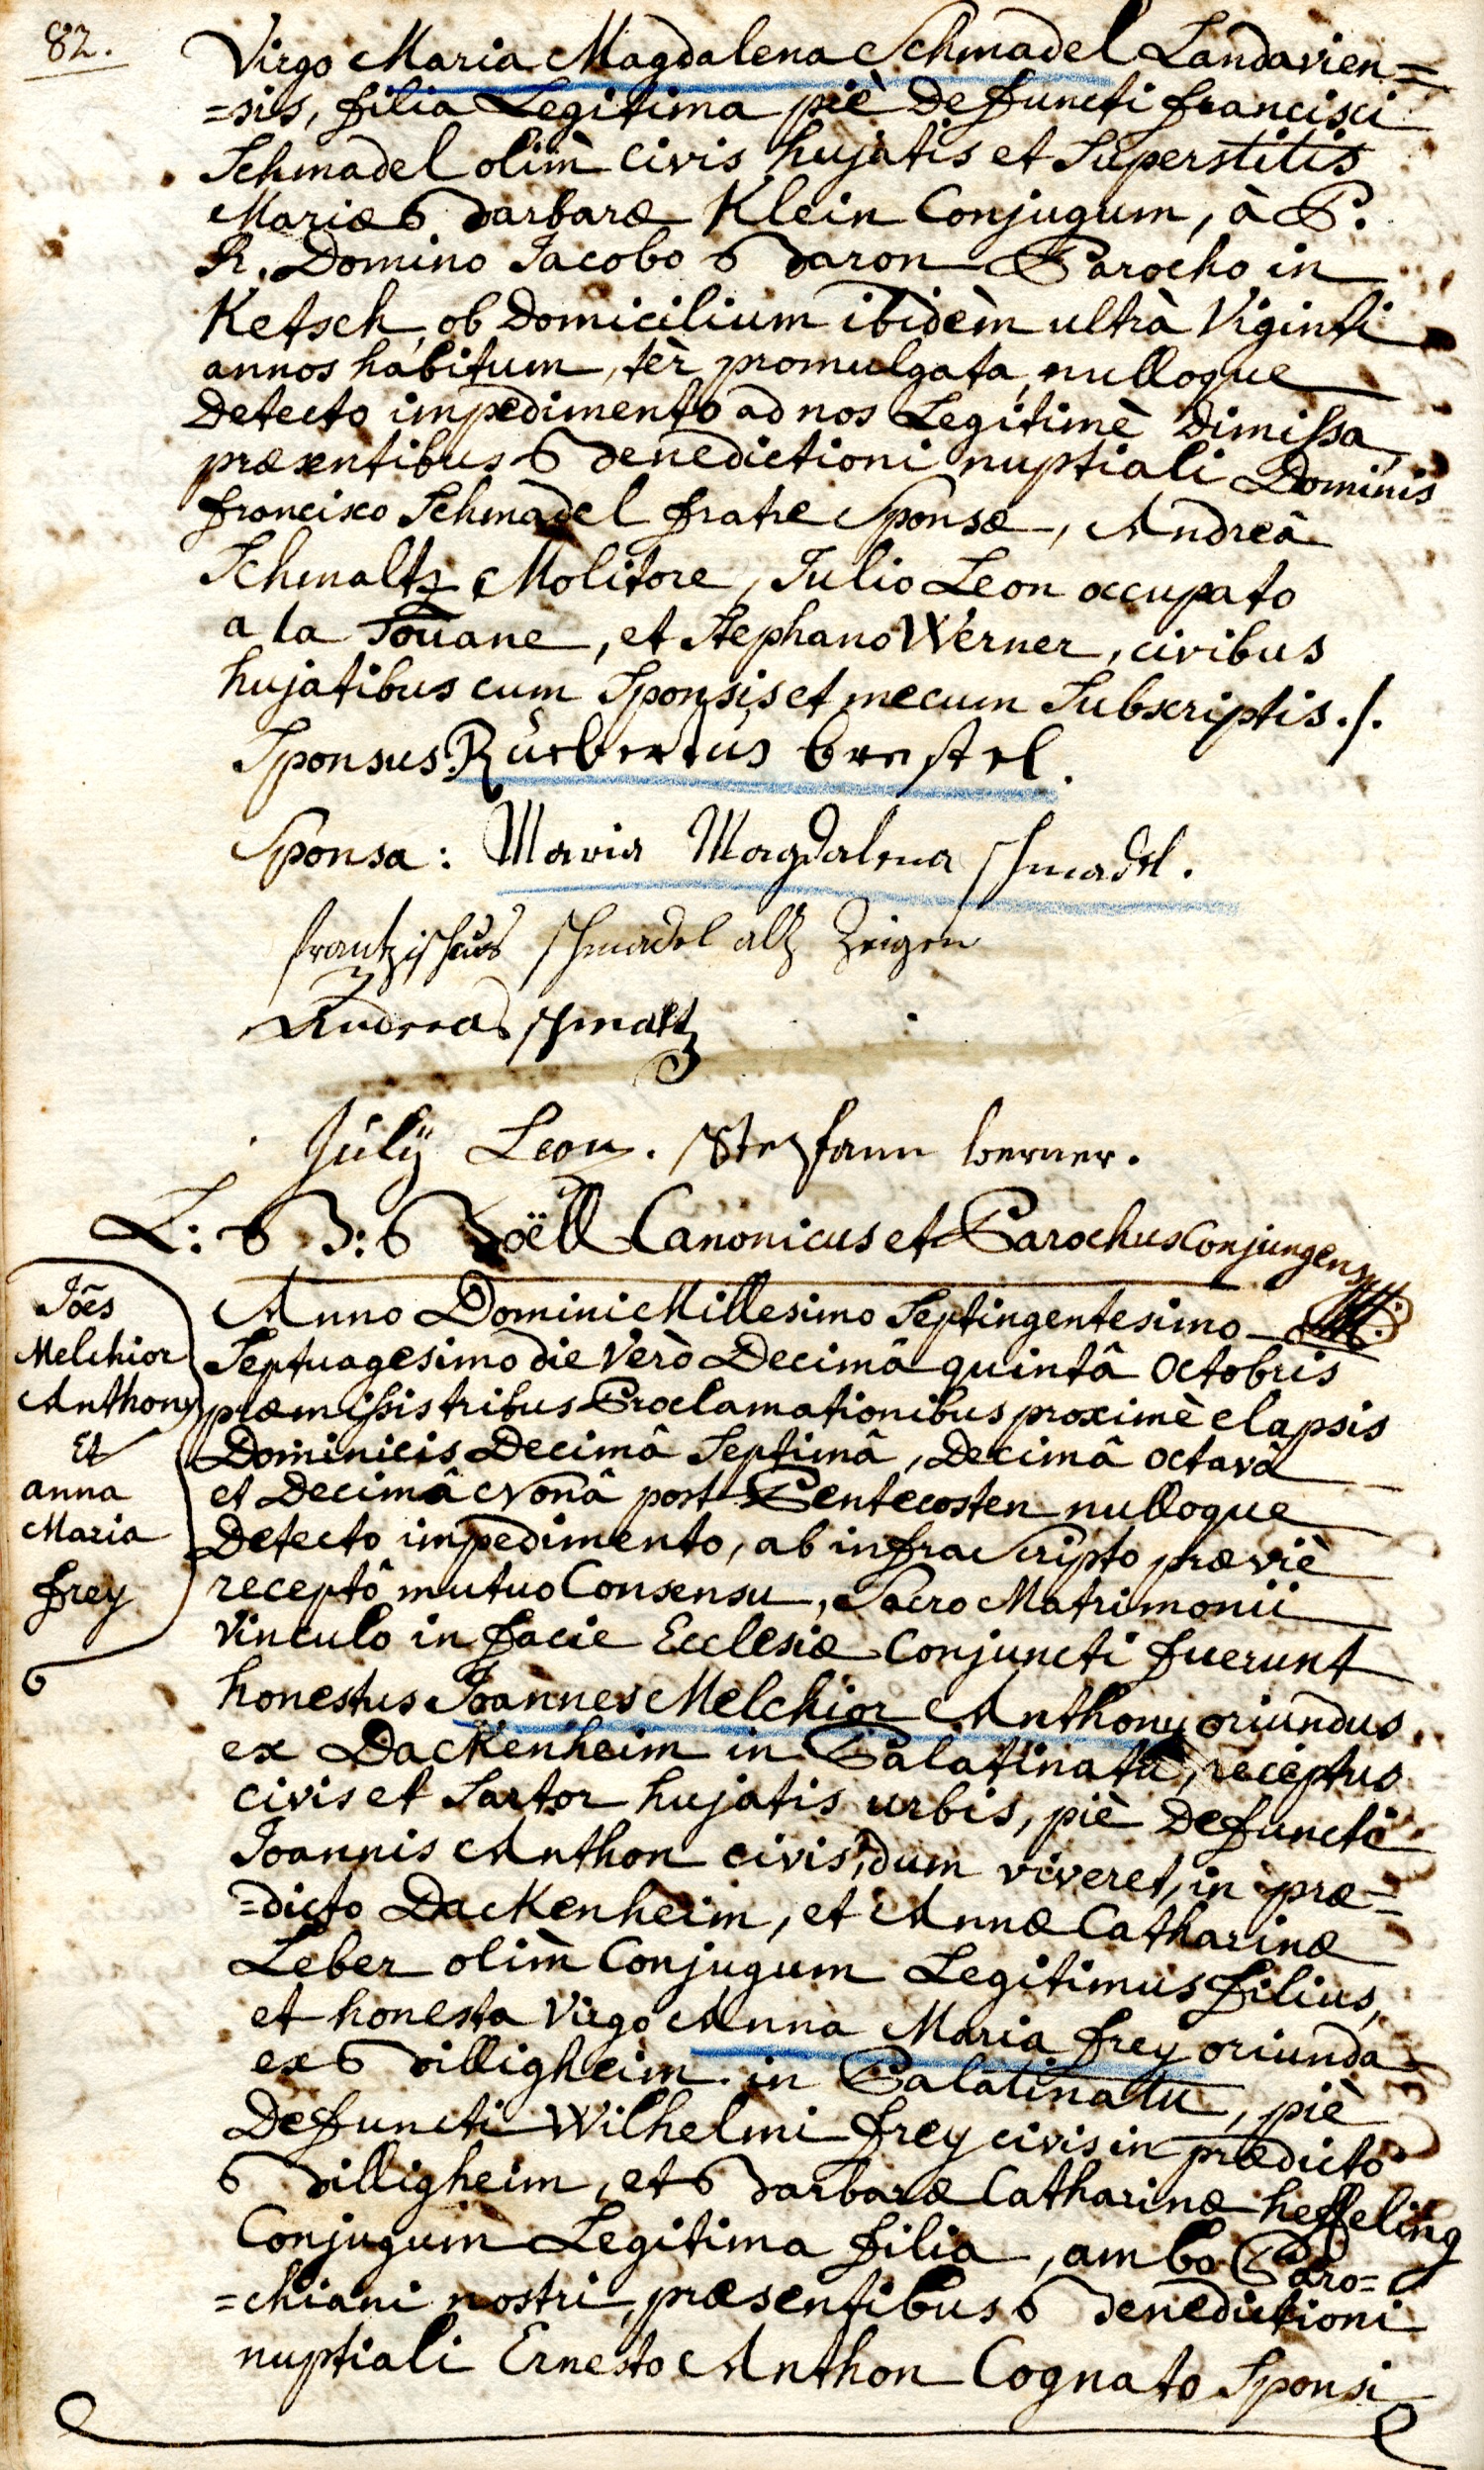 82.
Virgo Maria Magdalena Schmadel Landavien=
=sis, filia Legitima piè Defuncti francisci
Schmadel olim civis hujatis et Superstitis
Mariæ Barbaræ Klein Conjugum, à P.
R. Domino Jacobo Baron Parocho in
Ketsch, ob Domicilium ibidèm ultrà Viginti
annos habitum, tèr promulgata, nulloque
Detecto impedimento ad nos Legitimè Dimissa,
præsentibus Benedictioni nuptiali Dominis
francisco Schmadel fratre Sponsæ, Andreâ
Schmaltz Molitore, Julio Leon occupato
a la Douane, et Stephano Werner, civibus
hujatibus cum Sponsis et mecum Subscriptis ./.
Sponsus Rubertus Brestel.
Sponsa: Maria Magdalena schmadel.
frantzischus schmadel alß Zeigen
Andreas schmaltz
Julÿ Leon. Steffann werner.
L: B: Boëll Canonicus et Parochus Conjungens
Jões
Melchior
Anthony
Et
anna
Maria
frey
Anno Domini Millesimo Septingentesimo
Septuagesimo die Verò Decimâ quintâ Octobris
præmissis tribus Proclamationibus proximè elapsis
Dominicis Decimâ Septimâ, Decimâ octavâ
et Decimâ Nonâ post Pentecosten nulloque
Detecto impedimento, ab infra Scripto præviè
receptô mutuo Consensu, Sacro Matrimonii
Vinculo in facie Ecclesiæ Conjuncti fuerunt
honestus Joannes Melchior Anthony oriundus
ex Dackenheim in Palatinatu, receptus
civis et Sartor hujatis urbis, piè Defuncti
Joannis Anthon civis, dum viveret, in præ=
=dicto Dackenheim, et Annæ Catharinæ
Leber olim Conjugum Legitimus filius,
et honesta Virgo Anna Maria frey oriunda
ex Billigheim in Palatinatu, piè
Defuncti Wilhelmi frey civis in prædicto
Billigheim, et Barbaræ Catharinæ heffeling
Conjugum Legitima filia, ambo Paro=
=chiani nostri, præsentibus Benedictioni
nuptiali Ernesto Anthon Cognato Sponsi